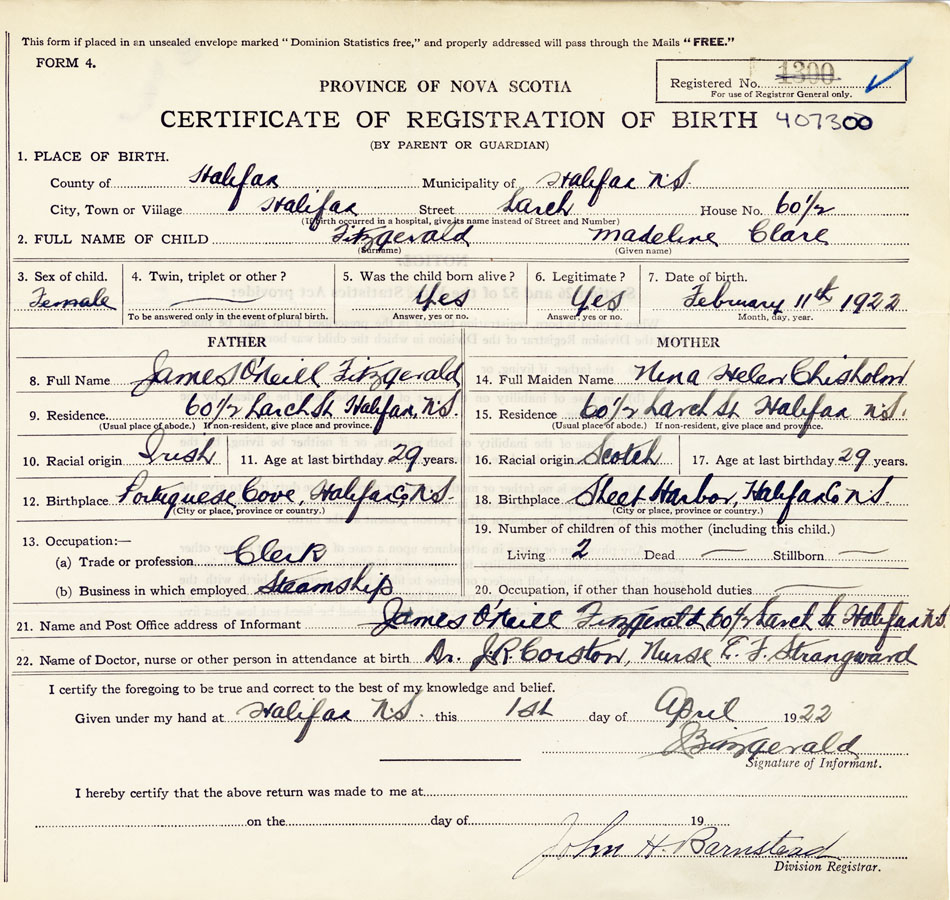 This form if placed in an unsealed envelope marked "Dominion Statistics free," and properly addressed will pass through the Mails "FREE."
FORM 4.
PROVINCE OF NOVA SCOTIA
Registered No. 1300
For use of Registrar General only.
CERTIFICATE OF REGISTRATION OF BIRTH 407300
(BY PARENT OR GUARDIAN)
1. PLACE OF BIRTH.
County of Halifax Municipality of Halifax N.S.
City, Town or Village Halifax Street Larch House No. 60½
(If birth occurred in a hospital, give its name instead of Street and Number)
2. FULL NAME OF CHILD Fitzgerald Madeline Clare
(Surname) (Given name)
3. Sex of child. 4. Twin, triplet or other? 5. Was the child born alive? 6. Legitimate? 7. Date of birth.
Female Yes Yes February 11th 1922
To be answered only in the event of plural birth. Answer, yes or no. Answer, yes or no. Month, day, year.
FATHER MOTHER
8. Full Name James O'Neill Fitzgerald 14. Full Maiden Name Nina Helen Chisholm
9. Residence 60½ Larch St Halifax, N.S. 15. Residence 60½ Larch St Halifax N.S.
(Usual place of abode.) If non-resident, give place and province. (Usual place of abode.) If non-resident, give place and province.
10. Racial origin Irish 11. Age at last birthday 29 years. 16. Racial origin Scotch 17. Age at last birthday 29 years.
12. Birthplace Portuguese Cove, Halifax Co, N.S. 18. Birthplace Sheet Harbor, Halifax Co N.S.
(City or place, province or country.) (City or place, province or country.)
13. Occupation:— 19. Number of children of this mother (including this child.)
(a) Trade or profession Clerk Living 2 Dead — Stillborn —
(b) Business in which employed Steamship 20. Occupation, if other than household duties
21. Name and Post Office address of Informant James O'Neill Fitzgerald 60½ Larch St Halifax N.S.
22. Name of Doctor, nurse or other person in attendance at birth Dr. J.R. Corston, Nurse E. F. Strangward
I certify the foregoing to be true and correct to the best of my knowledge and belief.
Given under my hand at Halifax N.S. this 1st day of April 1922
Fitzgerald
Signature of Informant.
I hereby certify that the above return was made to me at
on the day of 19
John H. Barnstead
Division Registrar.